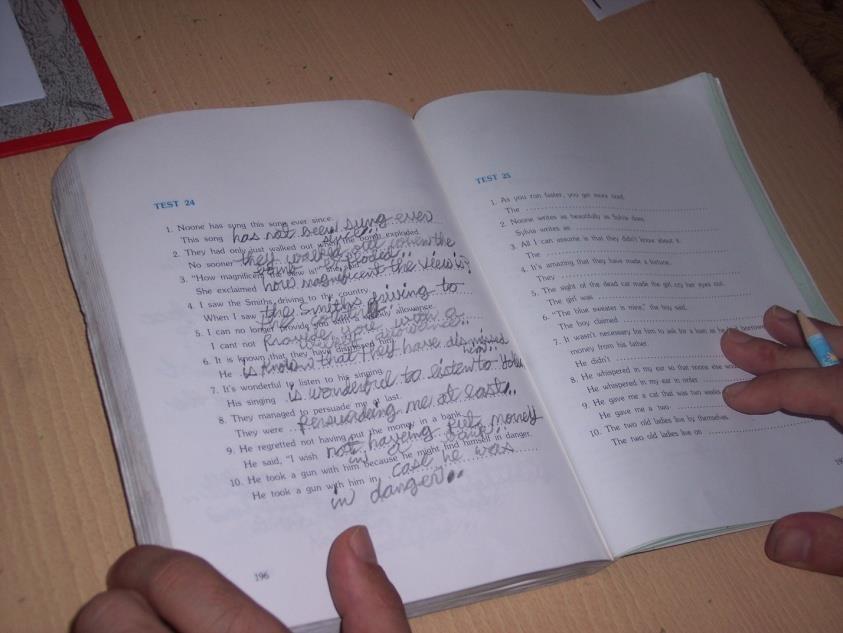 TEST 24
1. Noone has sung this song ever since.
This song has not been sung ever
since..
2. They had only just walked out when the bomb exploded.
No sooner they walked out when the
bomb exploded..
3. "How magnificent the view is!" she
She exclaimed how magnificent the view is!
4. I saw the Smiths driving to the country.
When I saw the Smiths driving to
the country..
5. I can no longer provide you with a weekly allowance.
I cant not Provide you with a
weekly allowance..
6. It is known that they have dismissed him.
He is known that They have dismissed
him..
7. It's wonderful to listen to his singing.
His singing is wonderful to listen to
8. They managed to persuade me at last.
They were Persuading me at last..
9. He regretted not having put the money in a bank.
He said, "I wish not having put money
in bank..
10. He took a gun with him because he might find himself in danger.
He took a gun with him in case he was
in danger..
196
TEST 25
1. As you run faster, you get more tired.
The
2. Noone writes as beautifully as Sylvia does.
Sylvia writes as
3. All I can assume is that they didn't know about it.
The
4. It's amazing that they have made a fortune.
They
5. The sight of the dead cat made the girl cry her eyes out.
The girl was
6. "The blue sweater is mine," the boy said.
The boy claimed
7. It wasn't necessary for him to ask for a loan as he had borrowed
money from his father.
He didn't
8. He whispered in my ear so that none else
He whispered in my ear in order
9. He gave me a cat that was two weeks
He gave me a two
10. The two old ladies live by themselves.
The two old ladies live on